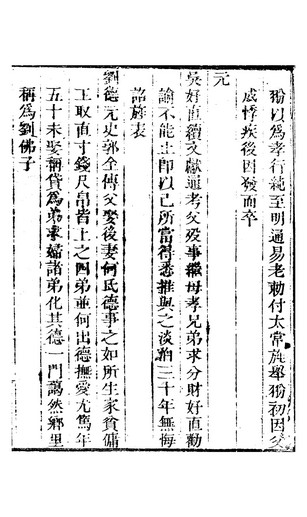 狥以為孝行純至明通易老勅付太常旌舉狥初因父
感悸疾後因發而卒
元
吳好直續文獻通考父歿事繼母孝兄弟求分財好直勸
諭不能止即以己所當得悉推與之淡泊三十年無悔
詔旌表
劉德元史郭全傳父娶後妻何氏德事之如所生家貧傭
工取直寸錢尺帛皆上之四弟並何出德撫愛尤篤年
五十未娶稱貸為弟求婦諸弟化其德一門藹然鄉里
稱為劉佛子